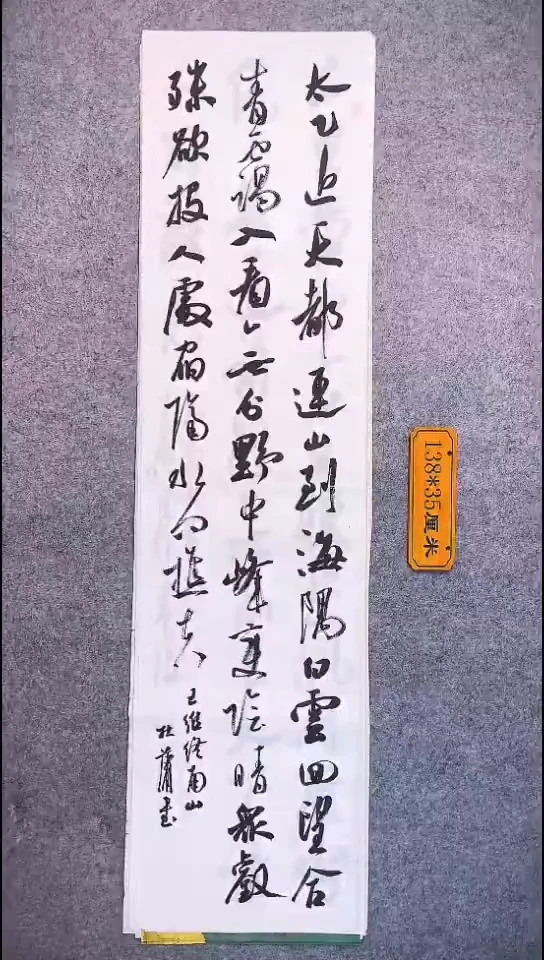 太乙近天都連山到海隅白雲回望合
青靄入看無分野中峰變陰晴眾壑
殊欲投人處宿隔水問樵夫
王維終南山
杜蒲書
138*35厘米